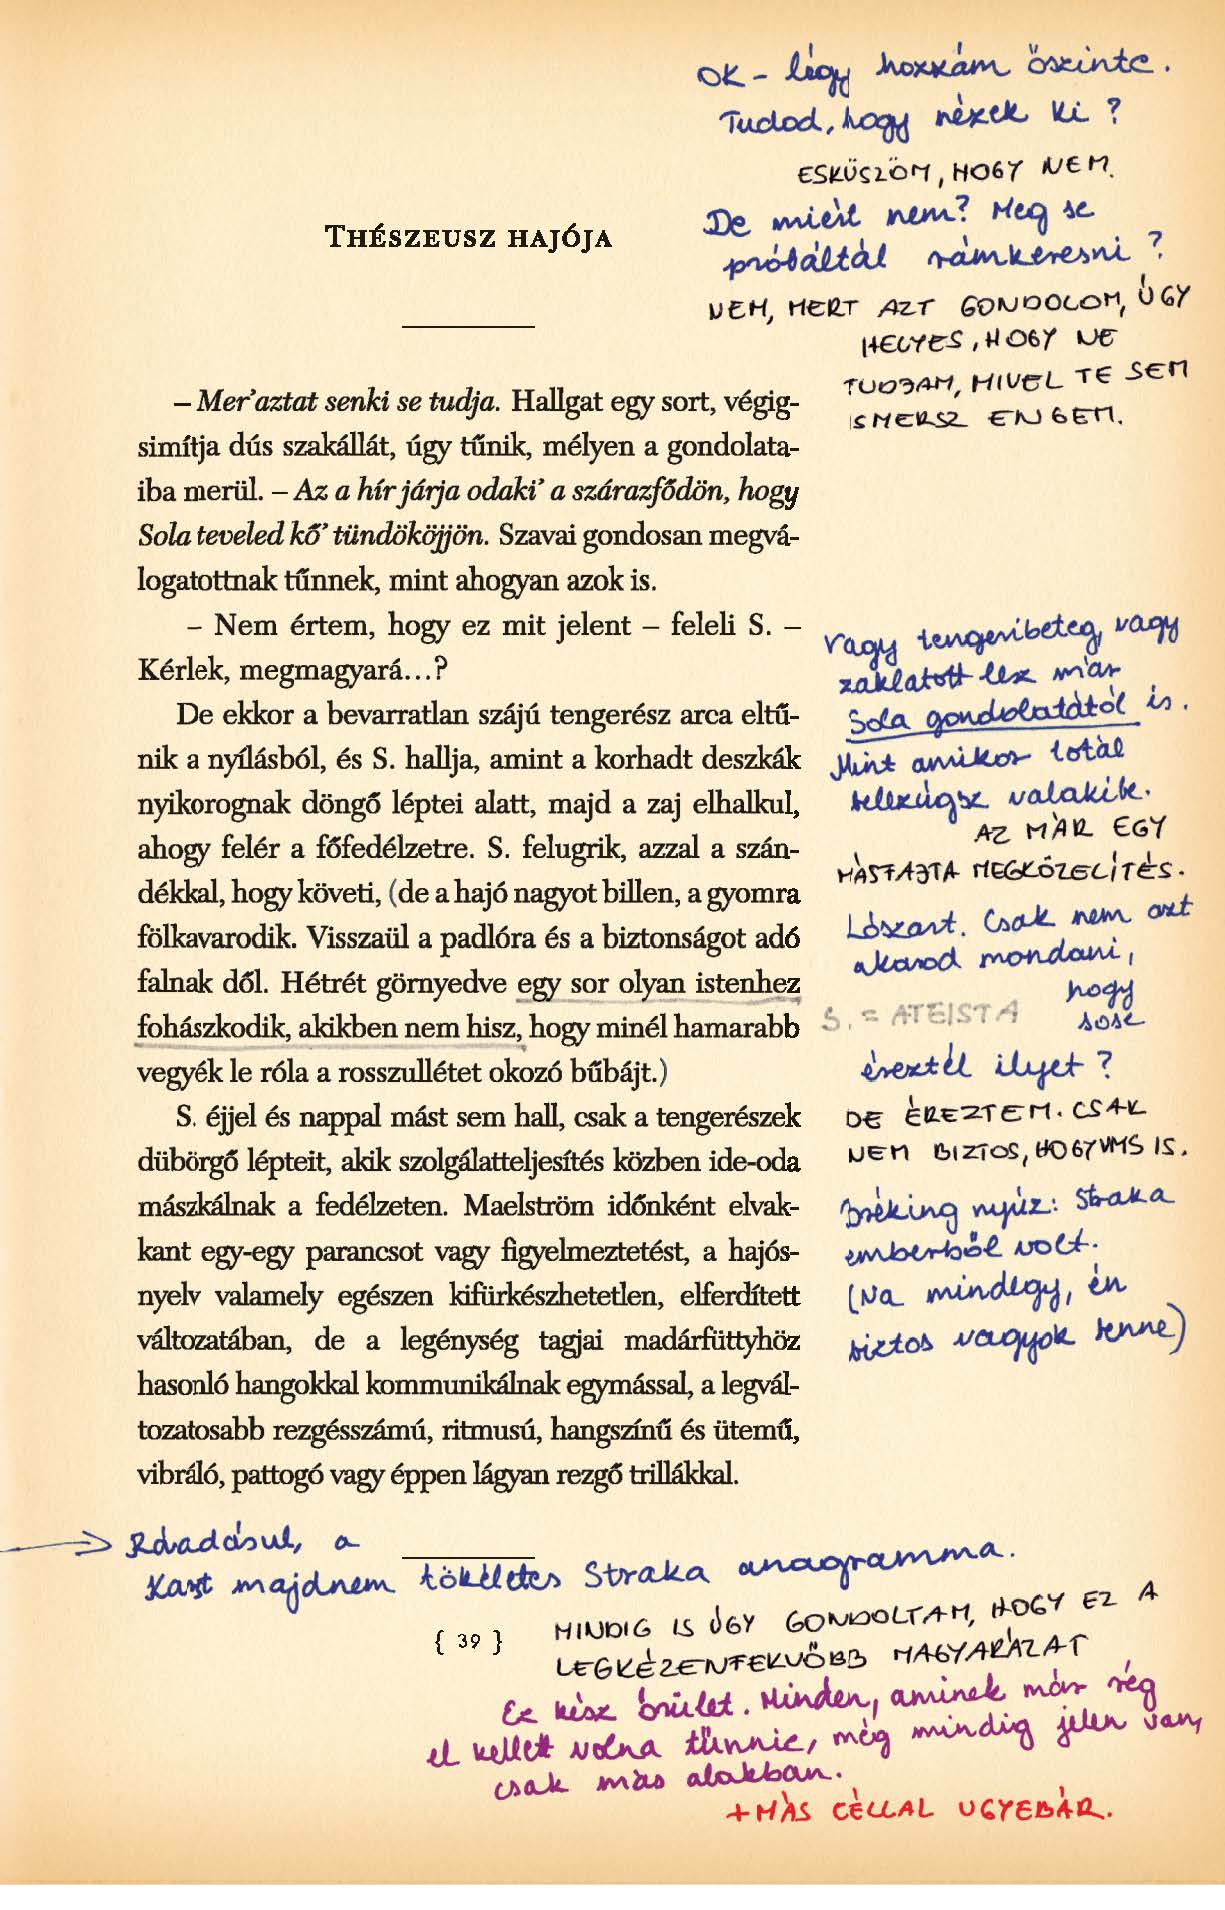 OK - légy hozzám őszinte.
Tudod, hogy nézek ki?
ESKÜSZÖM, HOGY NEM.
De miért nem? Meg se
próbáltál rámkeresni?
NEM, MERT AZT GONDOLOM, ÚGY
HELYES, HOGY NE
TUDJAM, MIVEL TE SEM
ISMERSZ ENGEM.
THÉSZEUSZ HAJÓJA
– Mer’aztat senki se tudja. Hallgat egy sort, végig-
simítja dús szakállát, úgy tűnik, mélyen a gondolata-
iba merül. – Az a hír járja odaki’ a szárazfődön, hogy
Sola teveled kő’ tündököjjön. Szavai gondosan megvá-
logatottnak tűnnek, mint ahogyan azok is.
– Nem értem, hogy ez mit jelent – feleli S. –
Kérlek, megmagyará…?
De ekkor a bevarratlan szájú tengerész arca eltű-
nik a nyílásból, és S. hallja, amint a korhadt deszkák
nyikorognak döngő léptei alatt, majd a zaj elhalkul,
ahogy felér a főfedélzetre. S. felugrik, azzal a szán-
dékkal, hogy követi, (de a hajó nagyot billen, a gyomra
fölkavarodik. Visszaül a padlóra és a biztonságot adó
falnak dől. Hétrét görnyedve egy sor olyan istenhez
fohászkodik, akikben nem hisz, hogy minél hamarabb
vegyék le róla a rosszullétet okozó bűbájt.)
S. éjjel és nappal mást sem hall, csak a tengerészek
dübörgő lépteit, akik szolgálatteljesítés közben ide-oda
mászkálnak a fedélzeten. Maelström időnként elvak-
kant egy-egy parancsot vagy figyelmeztetést, a hajós-
nyelv valamely egészen kifürkészhetetlen, elferdített
változatában, de a legénység tagjai madárfüttyhöz
hasonló hangokkal kommunikálnak egymással, a legvál-
tozatosabb rezgésszámú, ritmusú, hangszínű és ütemű,
vibráló, pattogó vagy éppen lágyan rezgő trillákkal.
Vagy tengeribeteg, vagy
zaklatott lesz már
Sola gondolatától is.
Mint amikor totál
belezúgsz valakibe.
AZ MÁR EGY
MÁSFAJTA MEGKÖZELÍTÉS.
Lószart. Csak nem azt
akarod mondani,
hogy
sose
éreztél ilyet?
S. = ATEISTA
DE ÉREZTEM. CSAK
NEM BIZTOS, HOGY VMS IS.
Bréking nyúz: Straka
emberből volt.
(Na mindegy, én
biztos vagyok benne)
Ráadásul, a
Kaszt majdnem tökéletes Straka anagramma.
{ 39 }
MINDIG IS ÚGY GONDOLTAM, HOGY EZ A
LEGKÉZENFEKVŐBB MAGYARÁZAT
Ez kész őrület. Minden, aminek már rég
el kellett volna tűnnie, még mindig jelen van,
csak más alakban.
+ MÁS CÉLLAL UGYEBÁR.